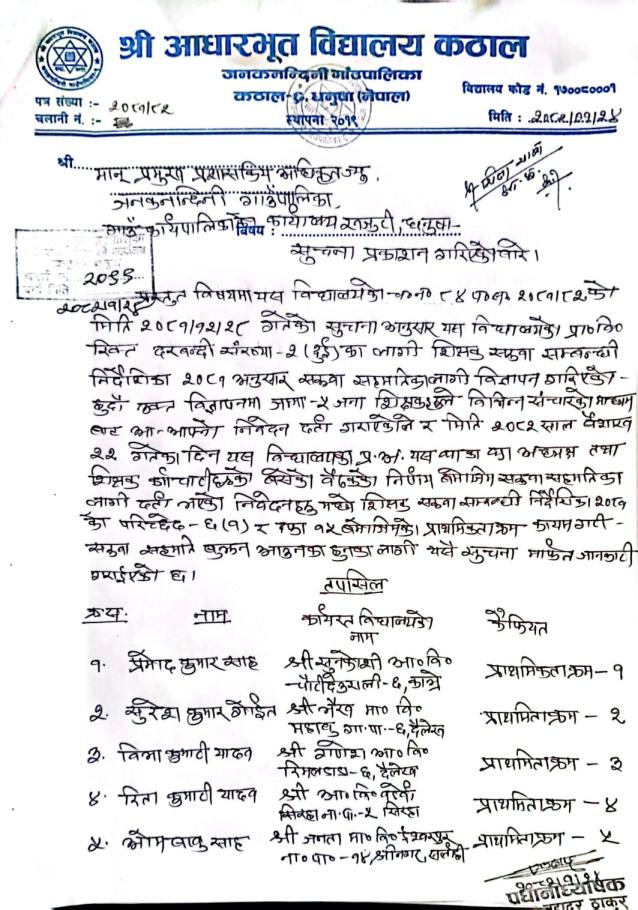 श्री आधारभूत विद्यालय कठाल
जनकनन्दिनी गाउँपालिका
कठाल-६, धनुषा (नेपाल)
स्थापना २०१९
विद्यालय कोड नं. १७००८०००१
पत्र संख्या :- २०८१/८२
चलानी नं. :-
मिति : २०८२/०१/२४
श्री मान् प्रमुख प्रशासकिय अधिकृतज्यु,
जनकनन्दिनी गाउँपालिका,
गाउँ कार्यपालिकाको कार्यालय धनुषा
विषय : सुचना प्रकाशन गरिएको बारे।
२०८२/१/२४
प्रस्तुत विषयमा यस विद्यालयको च०नं० ८४ प०सं० २०८१/८२ को
मिति २०८१/१२/२८ गतेको सुचना अनुसार यस विद्यालयको प्रा०वि०
रिक्त दरबन्दी संख्या-२ (दुई) का लागी शिक्षक सरुवा सम्बन्धी
निर्देशिका २०८१ अनुसार सरुवा सहमतिका लागी विज्ञापन गरिएको-
हुदाँ उक्त विज्ञापनमा जामा-५ जना शिक्षकहरुले विभिन्न संचारको माध्यम
बाट आ-आफ्नो निवेदन दर्ता गराएकोले र मिति २०८२ साल वैशाख
२२ गतेका दिन यस विद्यालयका प्र.अ. वडा अध्यक्ष तथा
शिक्षक कर्मचारीहरुको बसेको बैठकको निर्णय बमोजिम सरुवा सहमतिका
लागी दर्ता भएको निवेदनहरु मध्ये शिक्षक सरुवा सम्बन्धी निर्देशिका २०८१
को परिच्छेद-६(१) र दफा १५ बमोजिमको प्राथमिकताक्रम कायम गरी-
सरुवा सहमति बुझ्न आउनका लागी यसै सुचना मार्फत जानकारी
गराईएको छ।
तपसिल
क्र.सं. नाम कार्यरत विद्यालयको नाम कैफियत
१. प्रमोद कुमार साह श्री सुनकोशी आ०वि० चौरीदेउराली-६, काभ्रे प्राथमिकताक्रम-१
२. सुरेश कुमार गोईत श्री भैरव मा०वि० महाबु गा.पा.-६, दैलेख प्राथमिताक्रम-२
३. विभा कुमारी यादव श्री गणेश आ०वि० दैलेख प्राथमिताक्रम-३
४. रिता कुमारी यादव श्री आ०वि० सिरहा न.पा.-५ सिरहा प्राथमिताक्रम-४
५. ओम बाबु साह श्री जनता मा०वि० ईश्वरपुर न०पा०-१४, श्रीनगर, सर्लाही प्राथमिताक्रम-५
२०८२/१/२४
प्रधानाध्यापक
ठाकुर